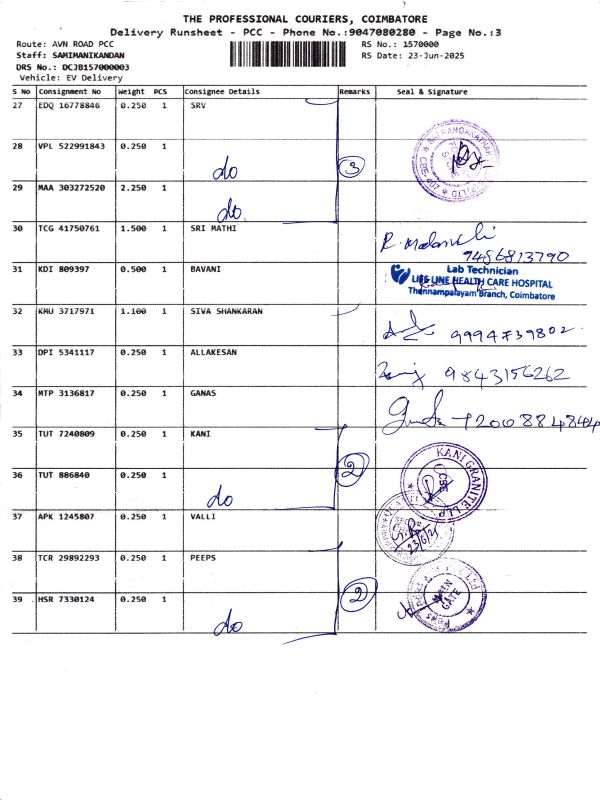 THE PROFESSIONAL COURIERS, COIMBATORE
Delivery Runsheet - PCC - Phone No.:9047080280 - Page No.:3
Route: AVN ROAD PCC
RS No.: 1570000
Staff: SAMIMANIKANDAN
RS Date: 23-Jun-2025
DRS No.: DCJB157000003
Vehicle: EV Delivery
S No Consignment No Weight PCS Consignee Details Remarks Seal & Signature
27 EDQ 16778846 0.250 1 SRV
28 VPL 522991843 0.250 1
do 3
29 MAA 303272520 2.250 1
do
30 TCG 41750761 1.500 1 SRI MATHI
9486813790
31 KDI 809397 0.500 1 BAVANI
Lab Technician
LIFE LINE HEALTH CARE HOSPITAL
Thennampalayam Branch, Coimbatore
32 KMU 3717971 1.100 1 SIVA SHANKARAN
9994739802
33 DPI 5341117 0.250 1 ALLAKESAN
9843156262
34 MTP 3136817 0.250 1 GANAS
7200884844
35 TUT 7240809 0.250 1 KANI
KANI GRANITE LLP
2
36 TUT 886840 0.250 1
do
37 APK 1245807 0.250 1 VALLI
23/6/25
38 TCR 29892293 0.250 1 PEEPS
MAIN GATE
2
39 HSR 7330124 0.250 1
do